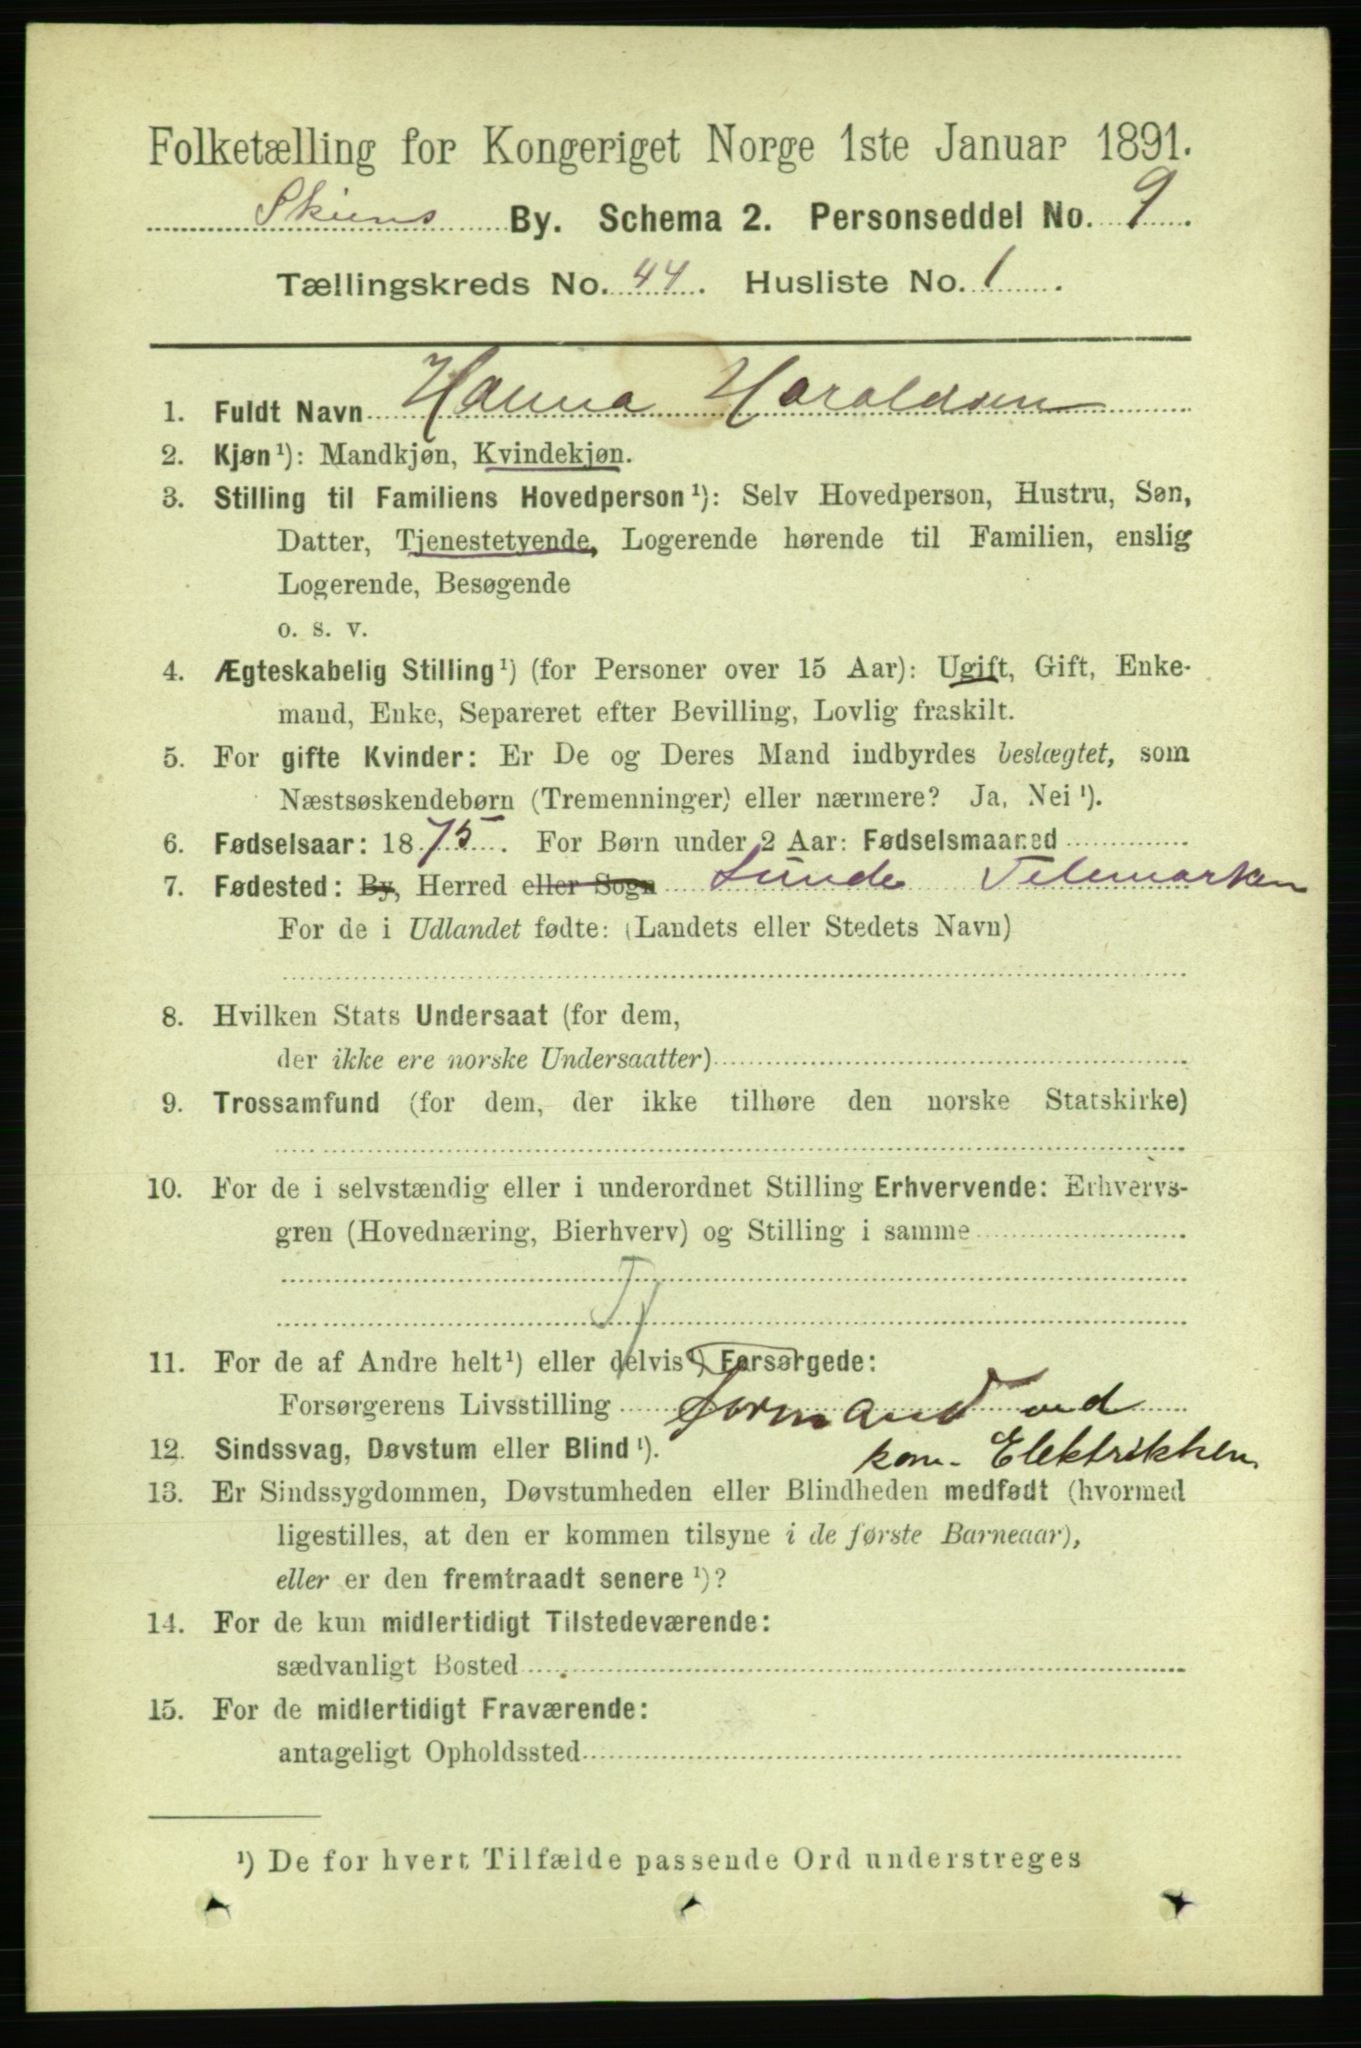 Folketælling for Kongeriget Norge 1ste Januar 1891.
Skiens By. Schema 2. Personseddel No. 9.
Tællingskreds No. 44. Husliste No. 1.
1. Fuldt Navn Hanna Haraldsen
2. Kjøn ¹): Mandkjøn, Kvindekjøn.
3. Stilling til Familiens Hovedperson ¹): Selv Hovedperson, Hustru, Søn,
Datter, Tjenestetyende, Logerende hørende til Familien, enslig
Logerende, Besøgende
o. s. v.
4. Ægteskabelig Stilling ¹) (for Personer over 15 Aar): Ugift, Gift, Enke-
mand, Enke, Separeret efter Bevilling, Lovlig fraskilt.
5. For gifte Kvinder: Er De og Deres Mand indbyrdes beslægtet, som
Næstsøskendebørn (Tremenninger) eller nærmere? Ja, Nei ¹).
6. Fødselsaar: 1875. For Børn under 2 Aar: Fødselsmaaned
7. Fødested: By, Herred eller Sogn Lunde Telemarken
For de i Udlandet fødte: (Landets eller Stedets Navn)
8. Hvilken Stats Undersaat (for dem,
der ikke ere norske Undersaatter)
9. Trossamfund (for dem, der ikke tilhøre den norske Statskirke)
10. For de i selvstændig eller i underordnet Stilling Erhvervende: Erhvervs-
gren (Hovednæring, Bierhverv) og Stilling i samme
Tj
11. For de af Andre helt ¹) eller delvis ¹) Forsørgede:
Forsørgerens Livsstilling Formand ved
kom. Elektrikken
12. Sindssvag, Døvstum eller Blind ¹).
13. Er Sindssygdommen, Døvstumheden eller Blindheden medfødt (hvormed
ligestilles, at den er kommen tilsyne i de første Barneaar),
eller er den fremtraadt senere ¹)?
14. For de kun midlertidigt Tilstedeværende:
sædvanligt Bosted
15. For de midlertidigt Fraværende:
antageligt Opholdssted
¹) De for hvert Tilfælde passende Ord understreges